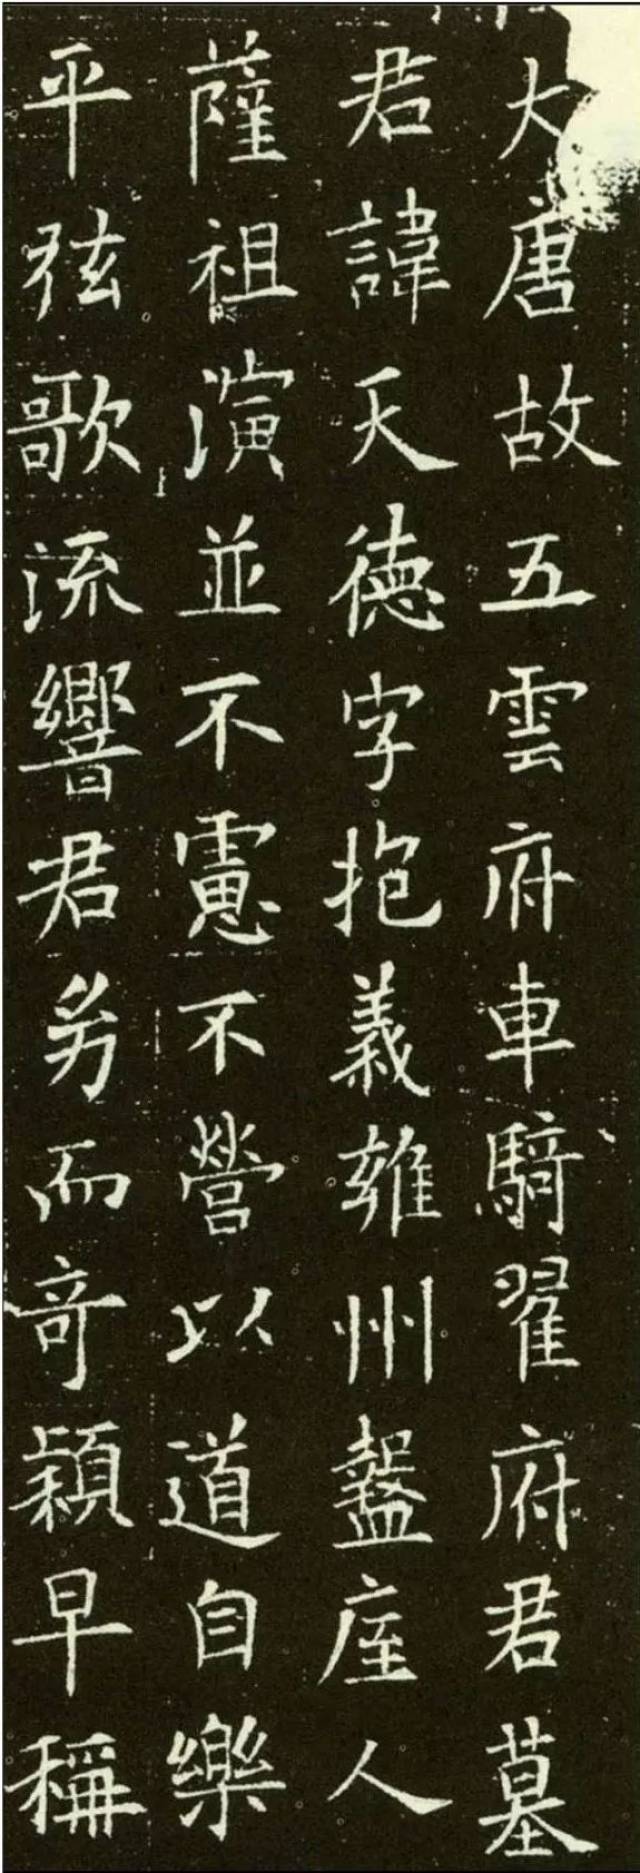 大唐故五雲府車騎翟府君墓
君諱天德字抱義雍州盩厔人
薩祖演並不慮不營以道自樂
平弦歌流響君幼而奇穎早稱